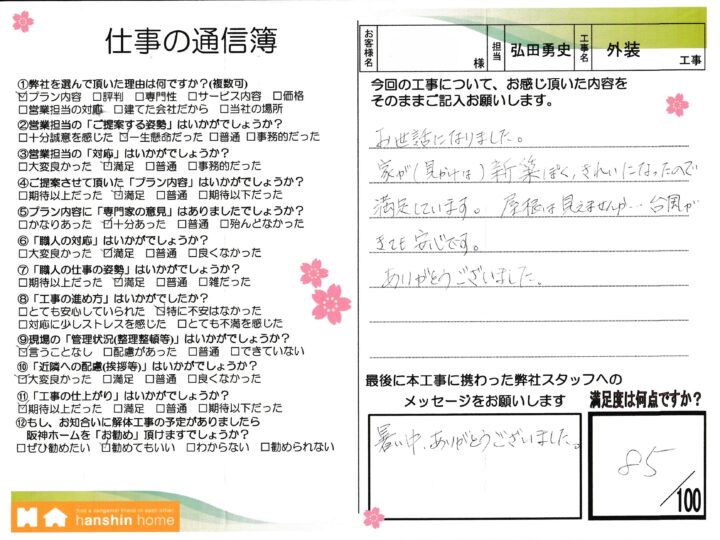 仕事の通信簿
①弊社を選んで頂いた理由は何ですか?(複数可)
☑プラン内容 □評判 □専門性 □サービス内容 □価格
□営業担当の対応 □建てた会社だから □当社の場所
②営業担当の「ご提案する姿勢」はいかがでしょうか?
□十分誠意を感じた ☑一生懸命だった □普通 □事務的だった
③営業担当の「対応」はいかがでしょうか?
□大変良かった ☑満足 □普通 □事務的だった
④ご提案させて頂いた「プラン内容」はいかがでしょうか?
□期待以上だった ☑満足 □普通 □期待以下だった
⑤プラン内容に「専門家の意見」はありましたでしょうか?
□かなりあった ☑十分あった □普通 □殆んどなかった
⑥「職人の対応」はいかがでしょうか?
□大変良かった ☑満足 □普通 □良くなかった
⑦「職人の仕事の姿勢」はいかがでしょうか?
□期待以上だった ☑満足 □普通 □雑だった
⑧「工事の進め方」はいかがでしたか?
□とても安心していられた ☑特に不安はなかった
□対応に少しストレスを感じた □とても不満を感じた
⑨現場の「管理状況(整理整頓等)」はいかがでしょうか?
☑言うことなし □配慮があった □普通 □できていない
⑩「近隣への配慮(挨拶等)」はいかがでしょうか?
☑大変良かった □満足 □普通 □良くなかった
⑪「工事の仕上がり」はいかがでしょうか?
☑期待以上だった □満足 □普通 □期待以下だった
⑫もし、お知合いに解体工事の予定がありましたら
阪神ホームを「お勧め」頂けますでしょうか?
□ぜひ勧めたい ☑勧めてもいい □わからない □勧められない
find a congenial friend in each other.
hanshin home
お客様名 様 担当 弘田勇史 工事名 外装 工事
今回の工事について、お感じ頂いた内容を
そのままご記入お願いします。
お世話になりました。
家が(見かけは)新築ぽく、きれいになったので
満足しています。 屋根は見えませんが…台風が
きても安心です。
ありがとうございました。
最後に本工事に携わった弊社スタッフへの
メッセージをお願いします
暑い中、ありがとうございました。
満足度は何点ですか?
85/100